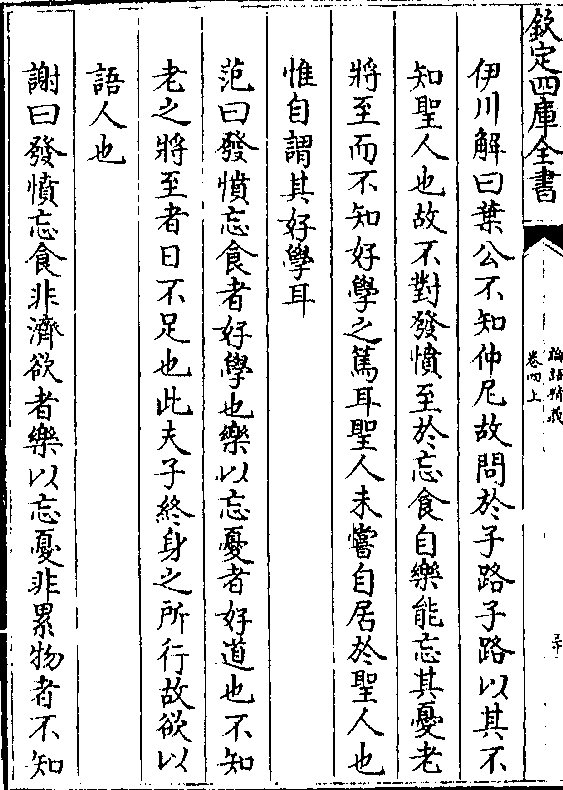 欽定四庫全書
論語精義
卷四上
伊川解曰葉公不知仲尼故問於子路子路以其不
知聖人也故不對發憤至於忘食自樂能忘其憂老
將至而不知好學之篤耳聖人未嘗自居於聖人也
惟自謂其好學耳
范曰發憤忘食者好學也樂以忘憂者好道也不知
老之將至者日不足也此夫子終身之所行故欲以
語人也
謝曰發憤忘食非濟欲者樂以忘憂非累物者不知